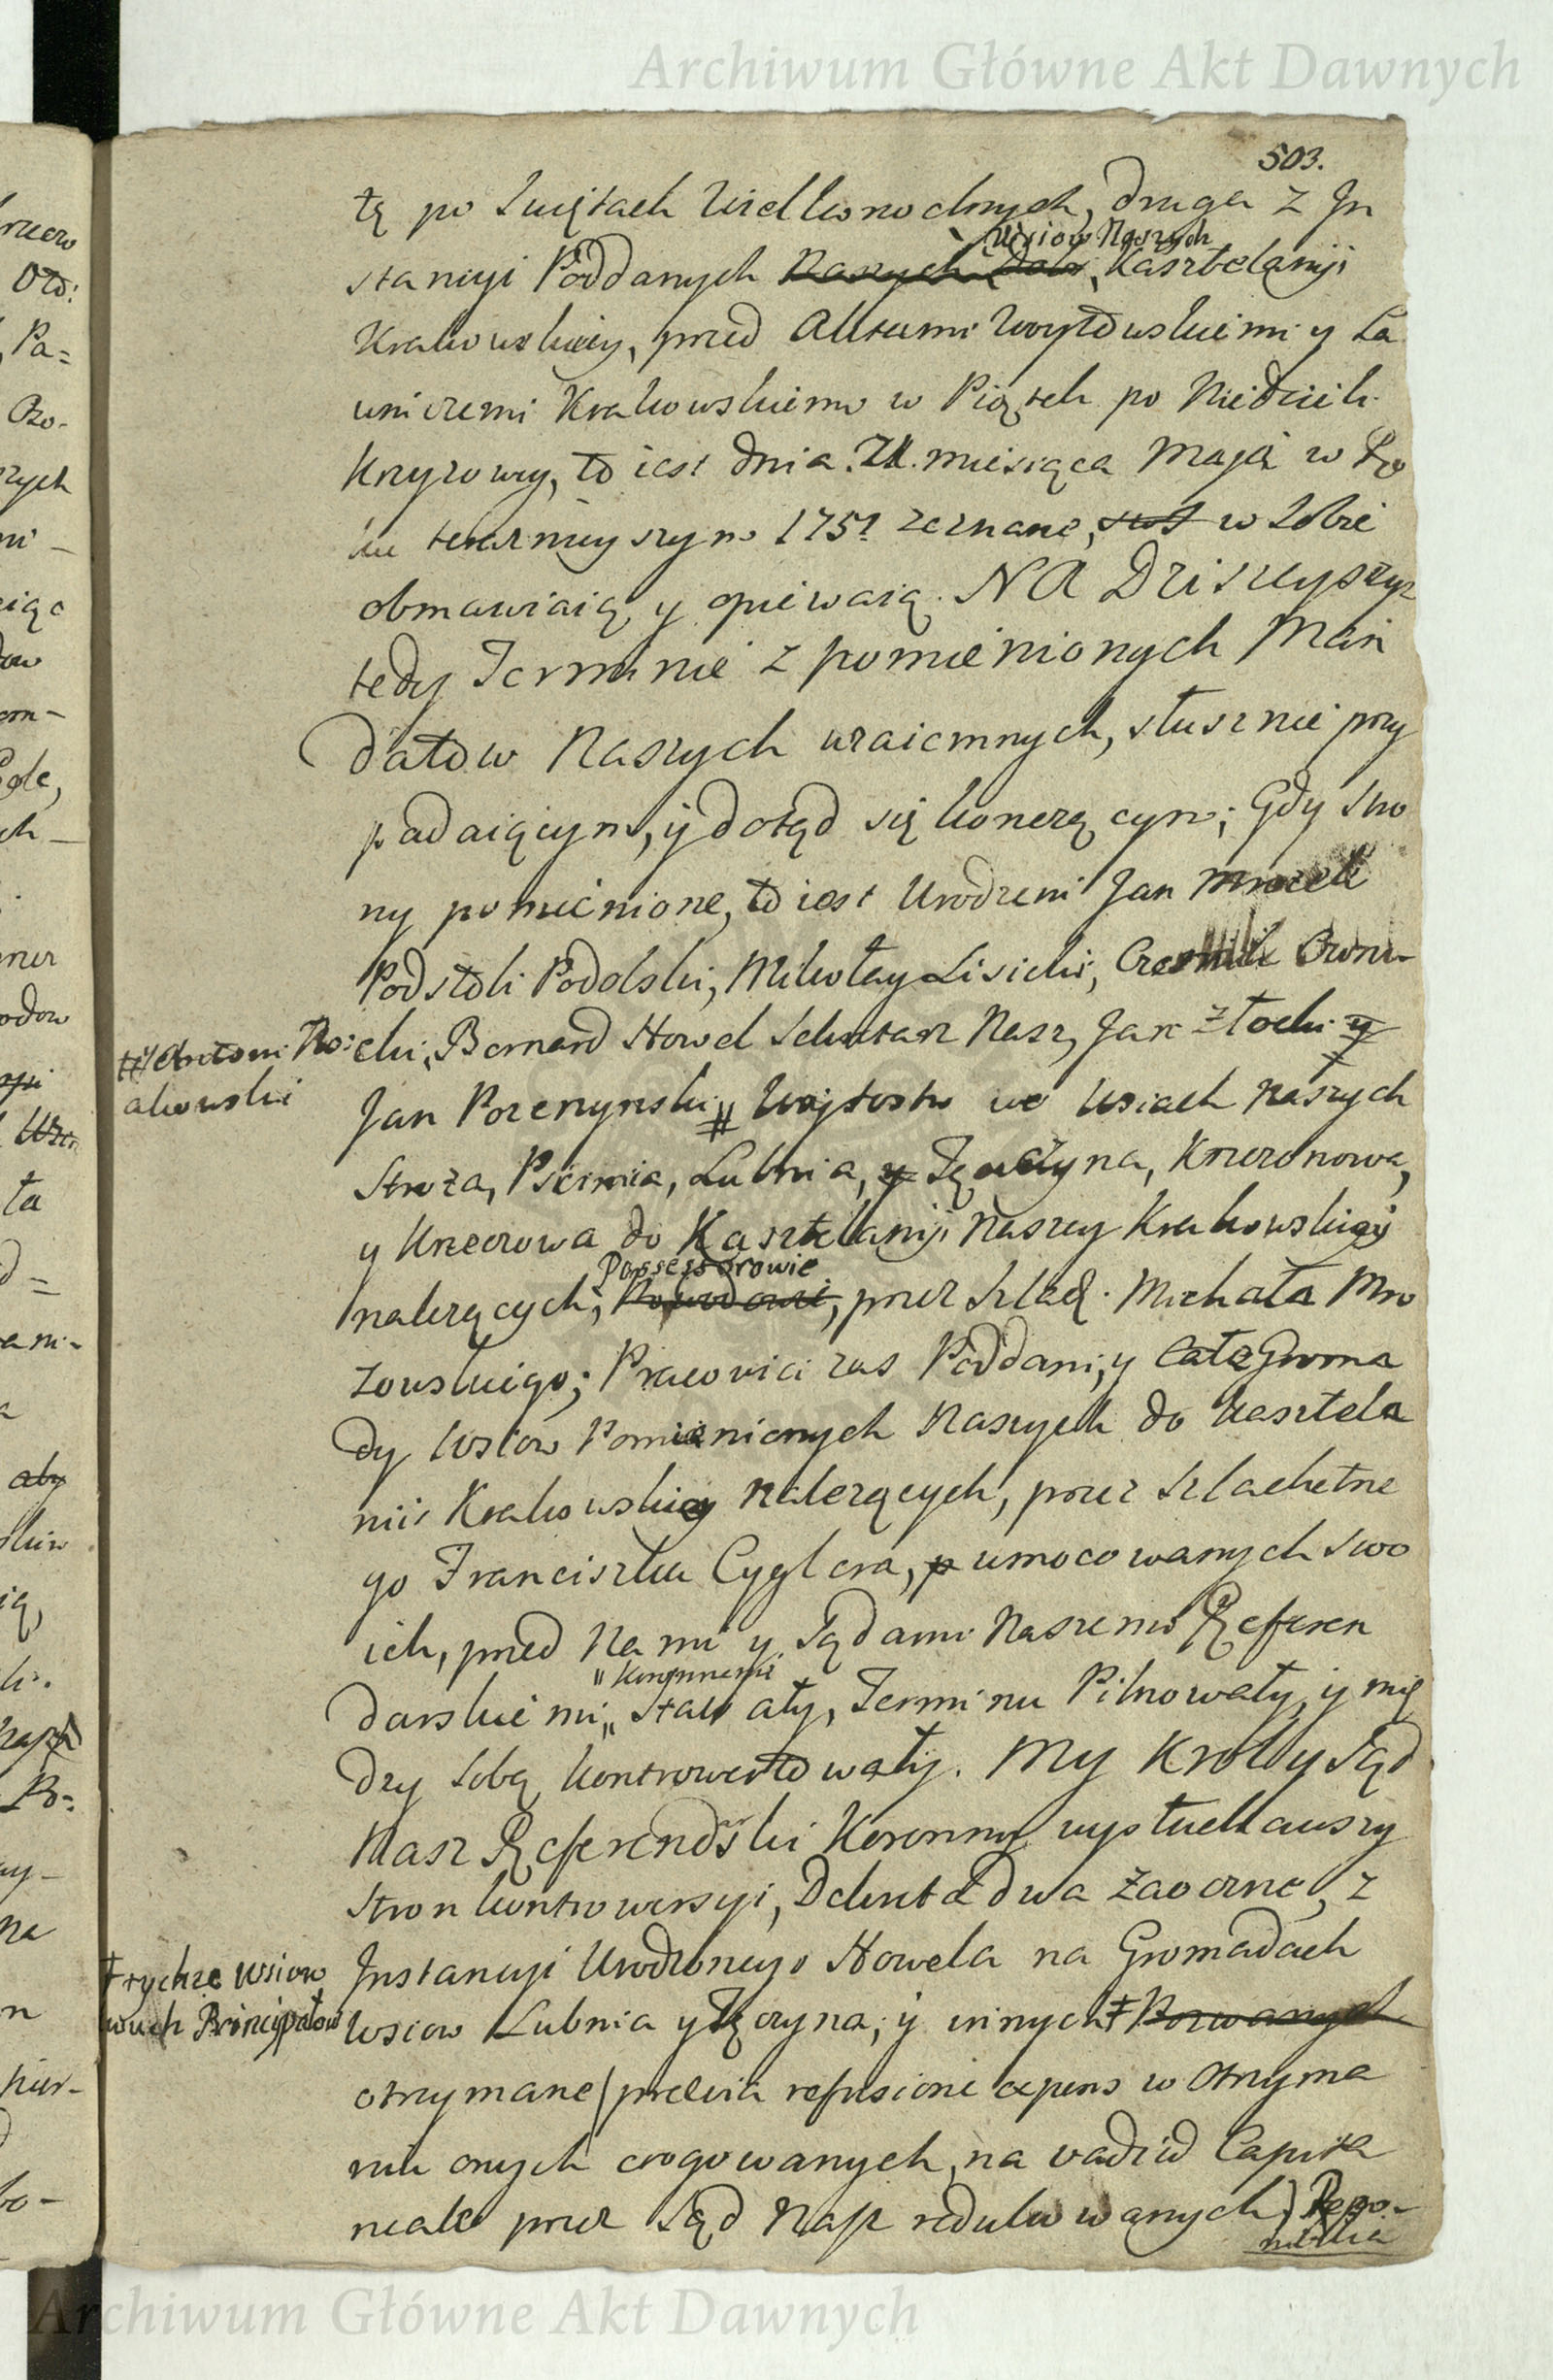 Archiwum Główne Akt Dawnych
503.
tę po Swiętach Wielkonocnych, druga z Jn
Wsiow Naszych
stancyi Poddanych Naszych Dobr, Kasztelanyi
Krakowskiey, przed Aktami Woytowskiemi y Ła
wniczemi Krakowskiemi w Piątek po Niedzieli
Krzyzowey, to iest dnia 21. miesiąca Maja w Ro
ku teraznieyszym 1751 zeznane, swoł w Sobie
obmawiaią y opiewaią. NA Dzisieyszym
tedy Terminie z pomienionych Man
datow Naszych wzaiemnych, słusznie przy
padaiącym, y dotąd się konczącym; Gdy Stro
ny pomienione, to iest Urodzeni Jan Mrozek
Podstoli Podolski, Mikołay Lisicki,
cki, Bernard Howel Sekretarz Nasz, Jan Złocki y
# Antoni Ro:
akowski
Jan Porczynski # Woytostw we Wsiach Naszych
Stroza, Pcimia, Lubnia, y Tęczyna, Krzczonowa,
y Krzeczowa do Kasztelanyi Naszey Krakowskiey
Possessorowie
nalezących, przez Szlach. Michała Mro
zowskiego; Pracowici zas Poddani, y cała Groma
dy Wsiow Pomienionych Naszych do Kasztela
nii Krakowskiey nalezących, przez Szlachetne
go Franciszka Cyglera, p umocowanych swo
ich, przed Nami y Sądami Naszemi Referen
" Koronnemi
darskiemi, " stawały, Terminu Pilnowały, y mię
dzy sobą kontrowertowały. My Krol y Sąd
Nasz Referendarski Koronny wysłuchawszy
Stron kontrowersyi, Dekreta dwa Zaoczne, z
Jnstancyi Urodzonego Howela na Gromadach
Wsiow Lubnia y Tęczyna, y innych ‡ Pozwanych
‡ tychze Wsiow
Principałow
otrzymane / previa refusione expens w Otrzyma
niu onych erogowanych, na vadiu Capita
neale przez Sąd Nasz redukowanych) Repo-
Archiwum Główne Akt Dawnych